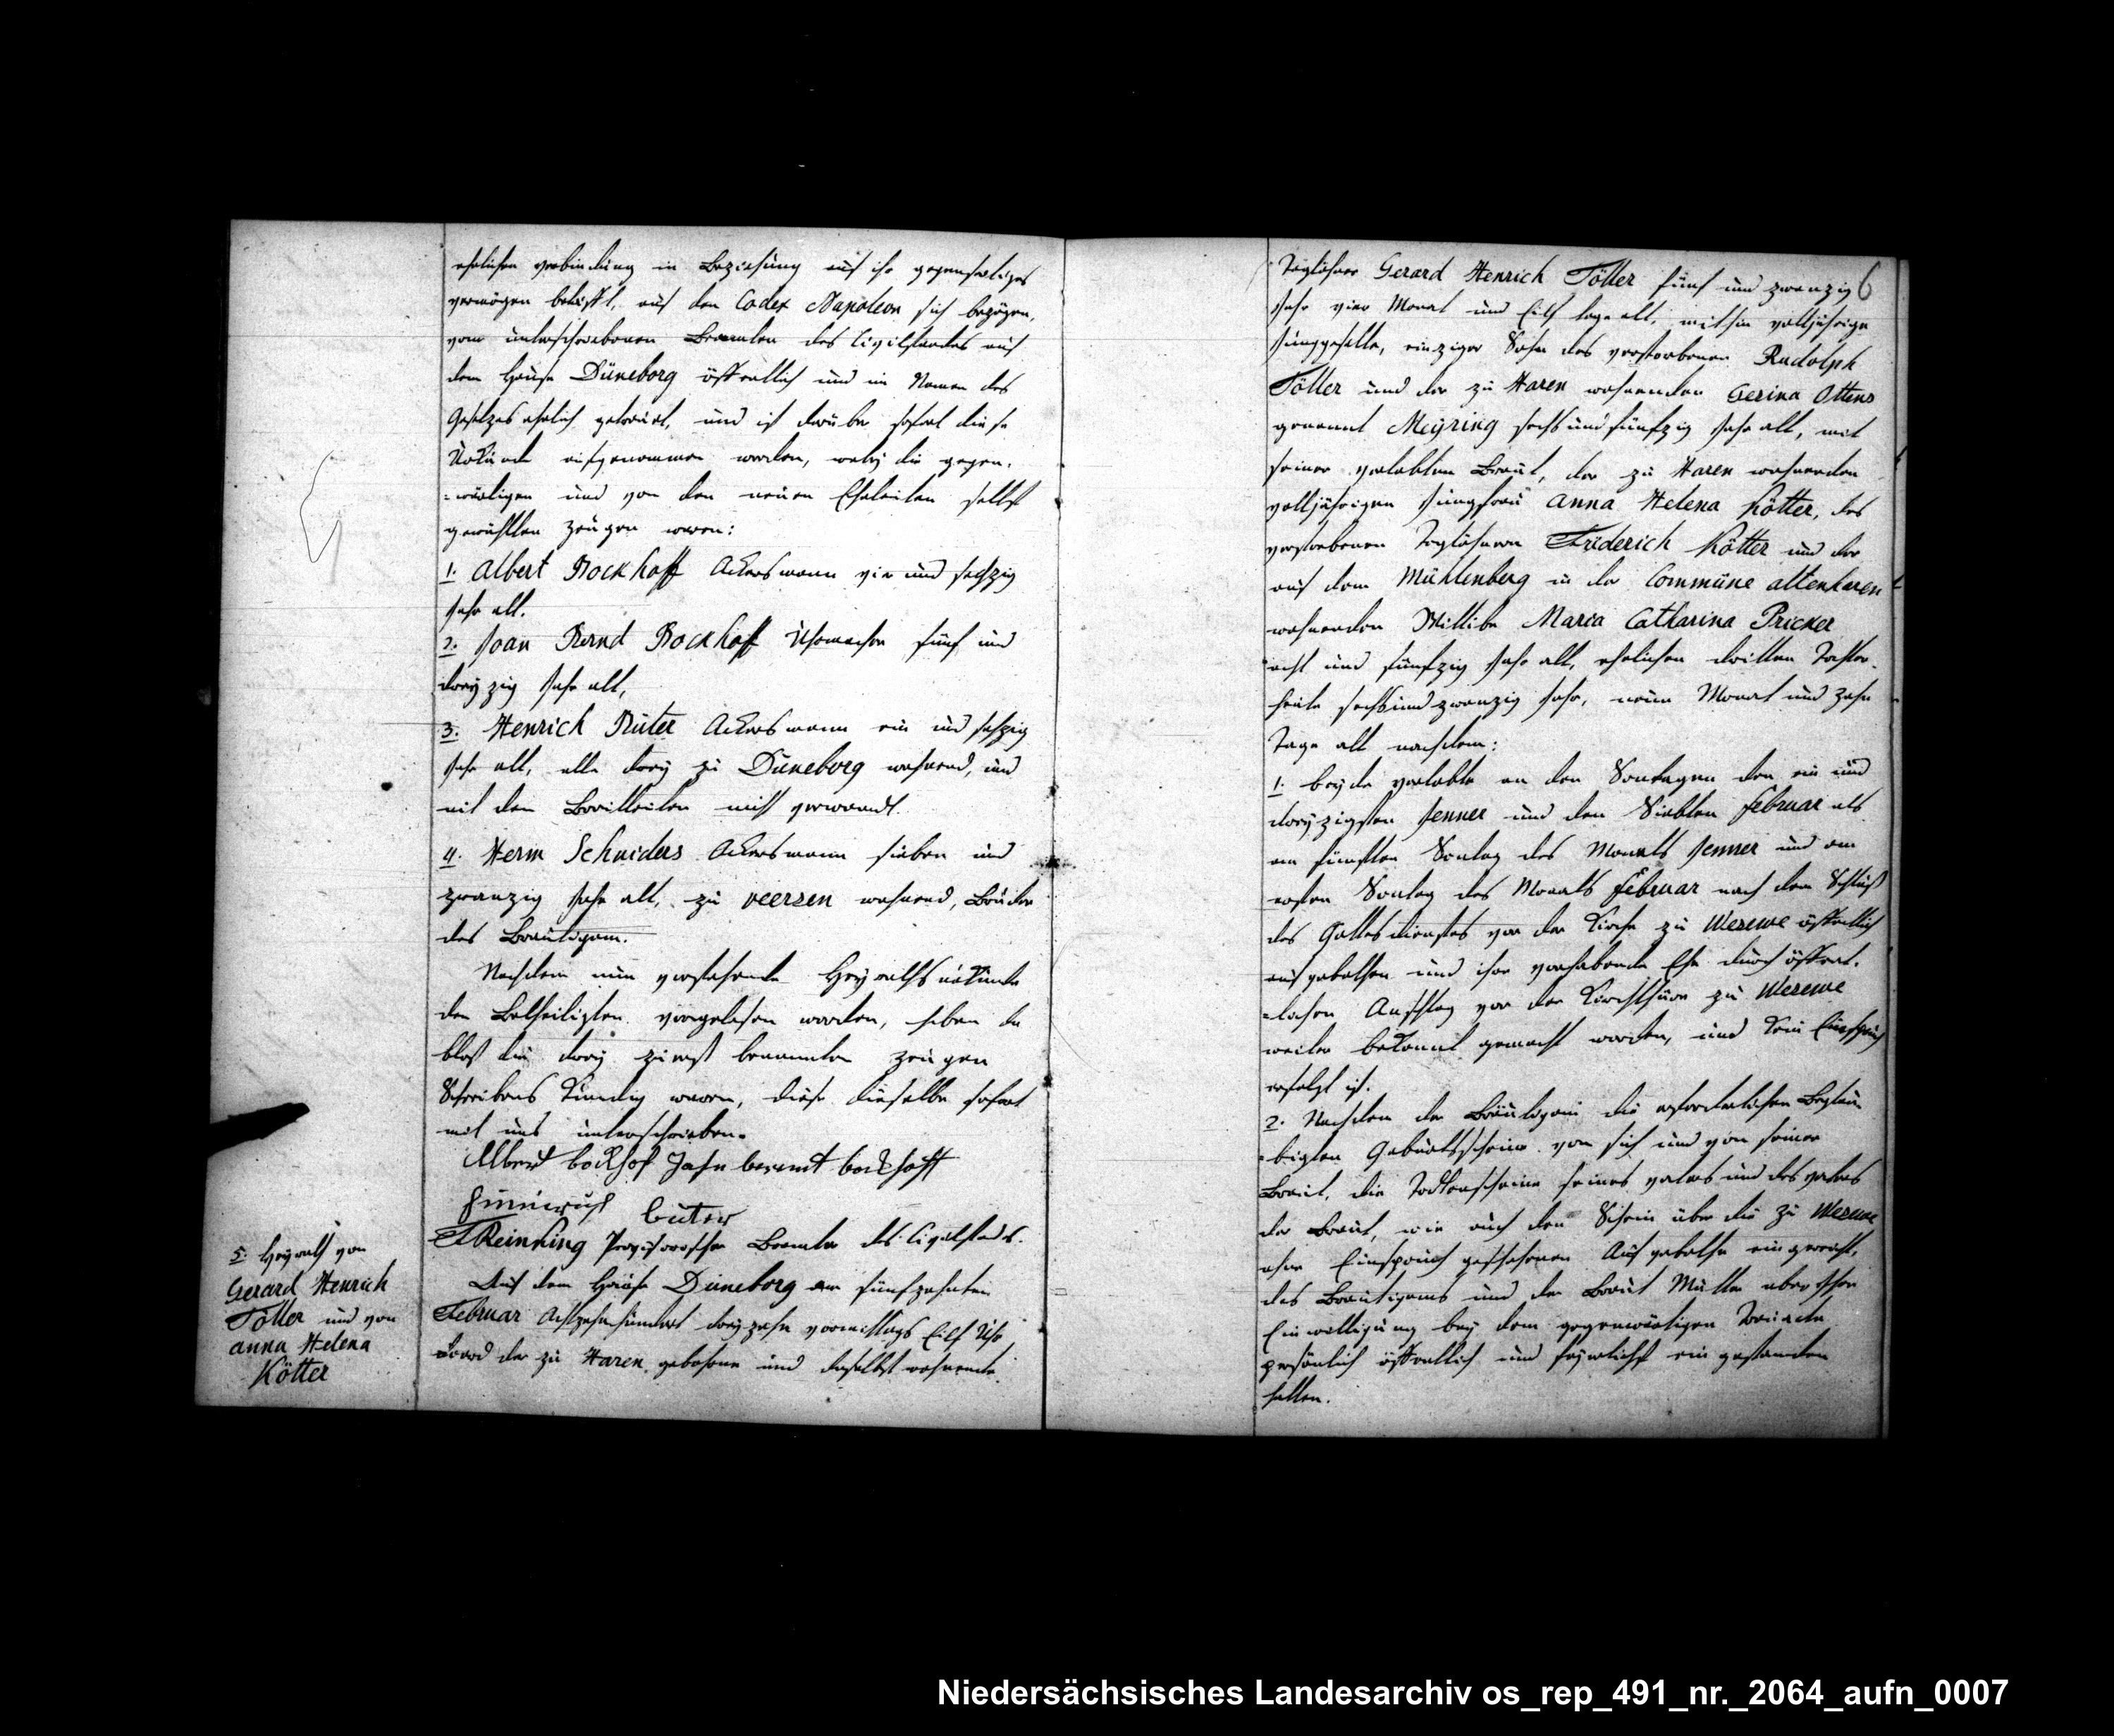 ehelichen verbindung in Beziehung auf ihr gegenseitiges
vermögen betrifft, auf den Codex Napoleon sich bezogen,
vom unterschriebenen Beamten des Civilstandes auf
dem Hause Düneborg öffentlich und im Namen des
Gesetzes ehelich getraut, und ist darüber sofort diese
Urkunde aufgenommen worden, wobey die gegen-
=wärtigen und von den neuen Eheleuten selbst
gewählten Zeugen waren:
1. Albert Bockhoff Ackersmann vier und sechzig
Jahr alt.
2. Joan Bernd Bockhoff Uhrmacher fünf und
dreyzig Jahr alt,
3. Henrich Büter Ackersmann ein und sechzig
Jahr alt, alle drey zu Düneborg wohnend, und
mit den Brautleuten nicht verwandt.
4. Herm Schniders Ackersmann sieben und
zwanzig Jahr alt, zu veersen wohnend, Bruder
des Bräutigam.
Nachdem nun vorstehende Heyrathsurkunde
den Betheiligten vorgelesen worden, haben da
bloß die drey zuerst benannten Zeugen
Schreibens kundig waren, diese dieselbe sofort
mit uns unterschrieben.
Albert bockhof Jahn berent bockhoff
Hinnrich büter
Reinking Provisorischer Beamter des Civilstandes.
5. Heyrath von
Gerard Henrich
Töller und von
Anna Helena
Kötter
Auf dem Hause Düneborg am fünfzehnten
Februar Achtzehnhundert dreyzehn vormittags Eilf Uhr
ward der zu Haren gebohrne und daselbst wohnende
6
Taglöhner Gerard Henrich Töller fünf und zwanzig
Jahr vier Monat und Eilf tage alt, mithin volljährige
Junggeselle, einziger Sohn des verstorbenen Rudolph
Töller und der zu Haren wohnenden Gerina Ottens
genannt Meyring sechs und fünfzig Jahr alt, mit
seiner verlobten Braut, der zu Haren wohnenden
volljährigen Jungfrau Anna Helena Kötter, des
verstorbenen Taglöhnern Friderich Kötter und der
auf dem Mühlenberg in der Commüne altenharen
wohnenden Wittibe Maria Catharina Pricker
acht und fünfzig Jahr alt, ehelichen dritten Tochter.
heute sechs und zwanzig Jahr, neun Monat und zehn
Tage alt nachdem:
1. beyde verlobte an den Sontagen den ein und
dreyzigsten Jenner und den Siebten Februar als
am fünften Sontag des Monats Jenner und am
ersten Sontag des Monats Februar nach dem Schluß
des Gottesdienstes vor der Kirche zu Wesuwe öffentlich
aufgebothen und ihre vorhabende Ehe durch öffent-
=lichen Anschlag vor der Kirchthüre zu Wesuwe
weiter bekannt gemacht worden, und kein Einspruch
erfolgt ist.
2. Nachdem der Bräutigam die erforderlichen Beglau-
=bigten Geburtsscheine von sich und von seiner
Braut, die Todtenscheine seines vaters und des vaters
der Braut, wie auch den Schein über die zu Wesuwe
ohne Einspruch geschehenen Aufgebothe eingereicht,
des Bräutigams und der Braut Mütter aber ihre
Einwilligung bey dem gegenwärtigen
persönlich öffentlich und feyerlichst eingestanden
hatten.
Niedersächsisches Landesarchiv os_rep_491_nr._2064_aufn_0007